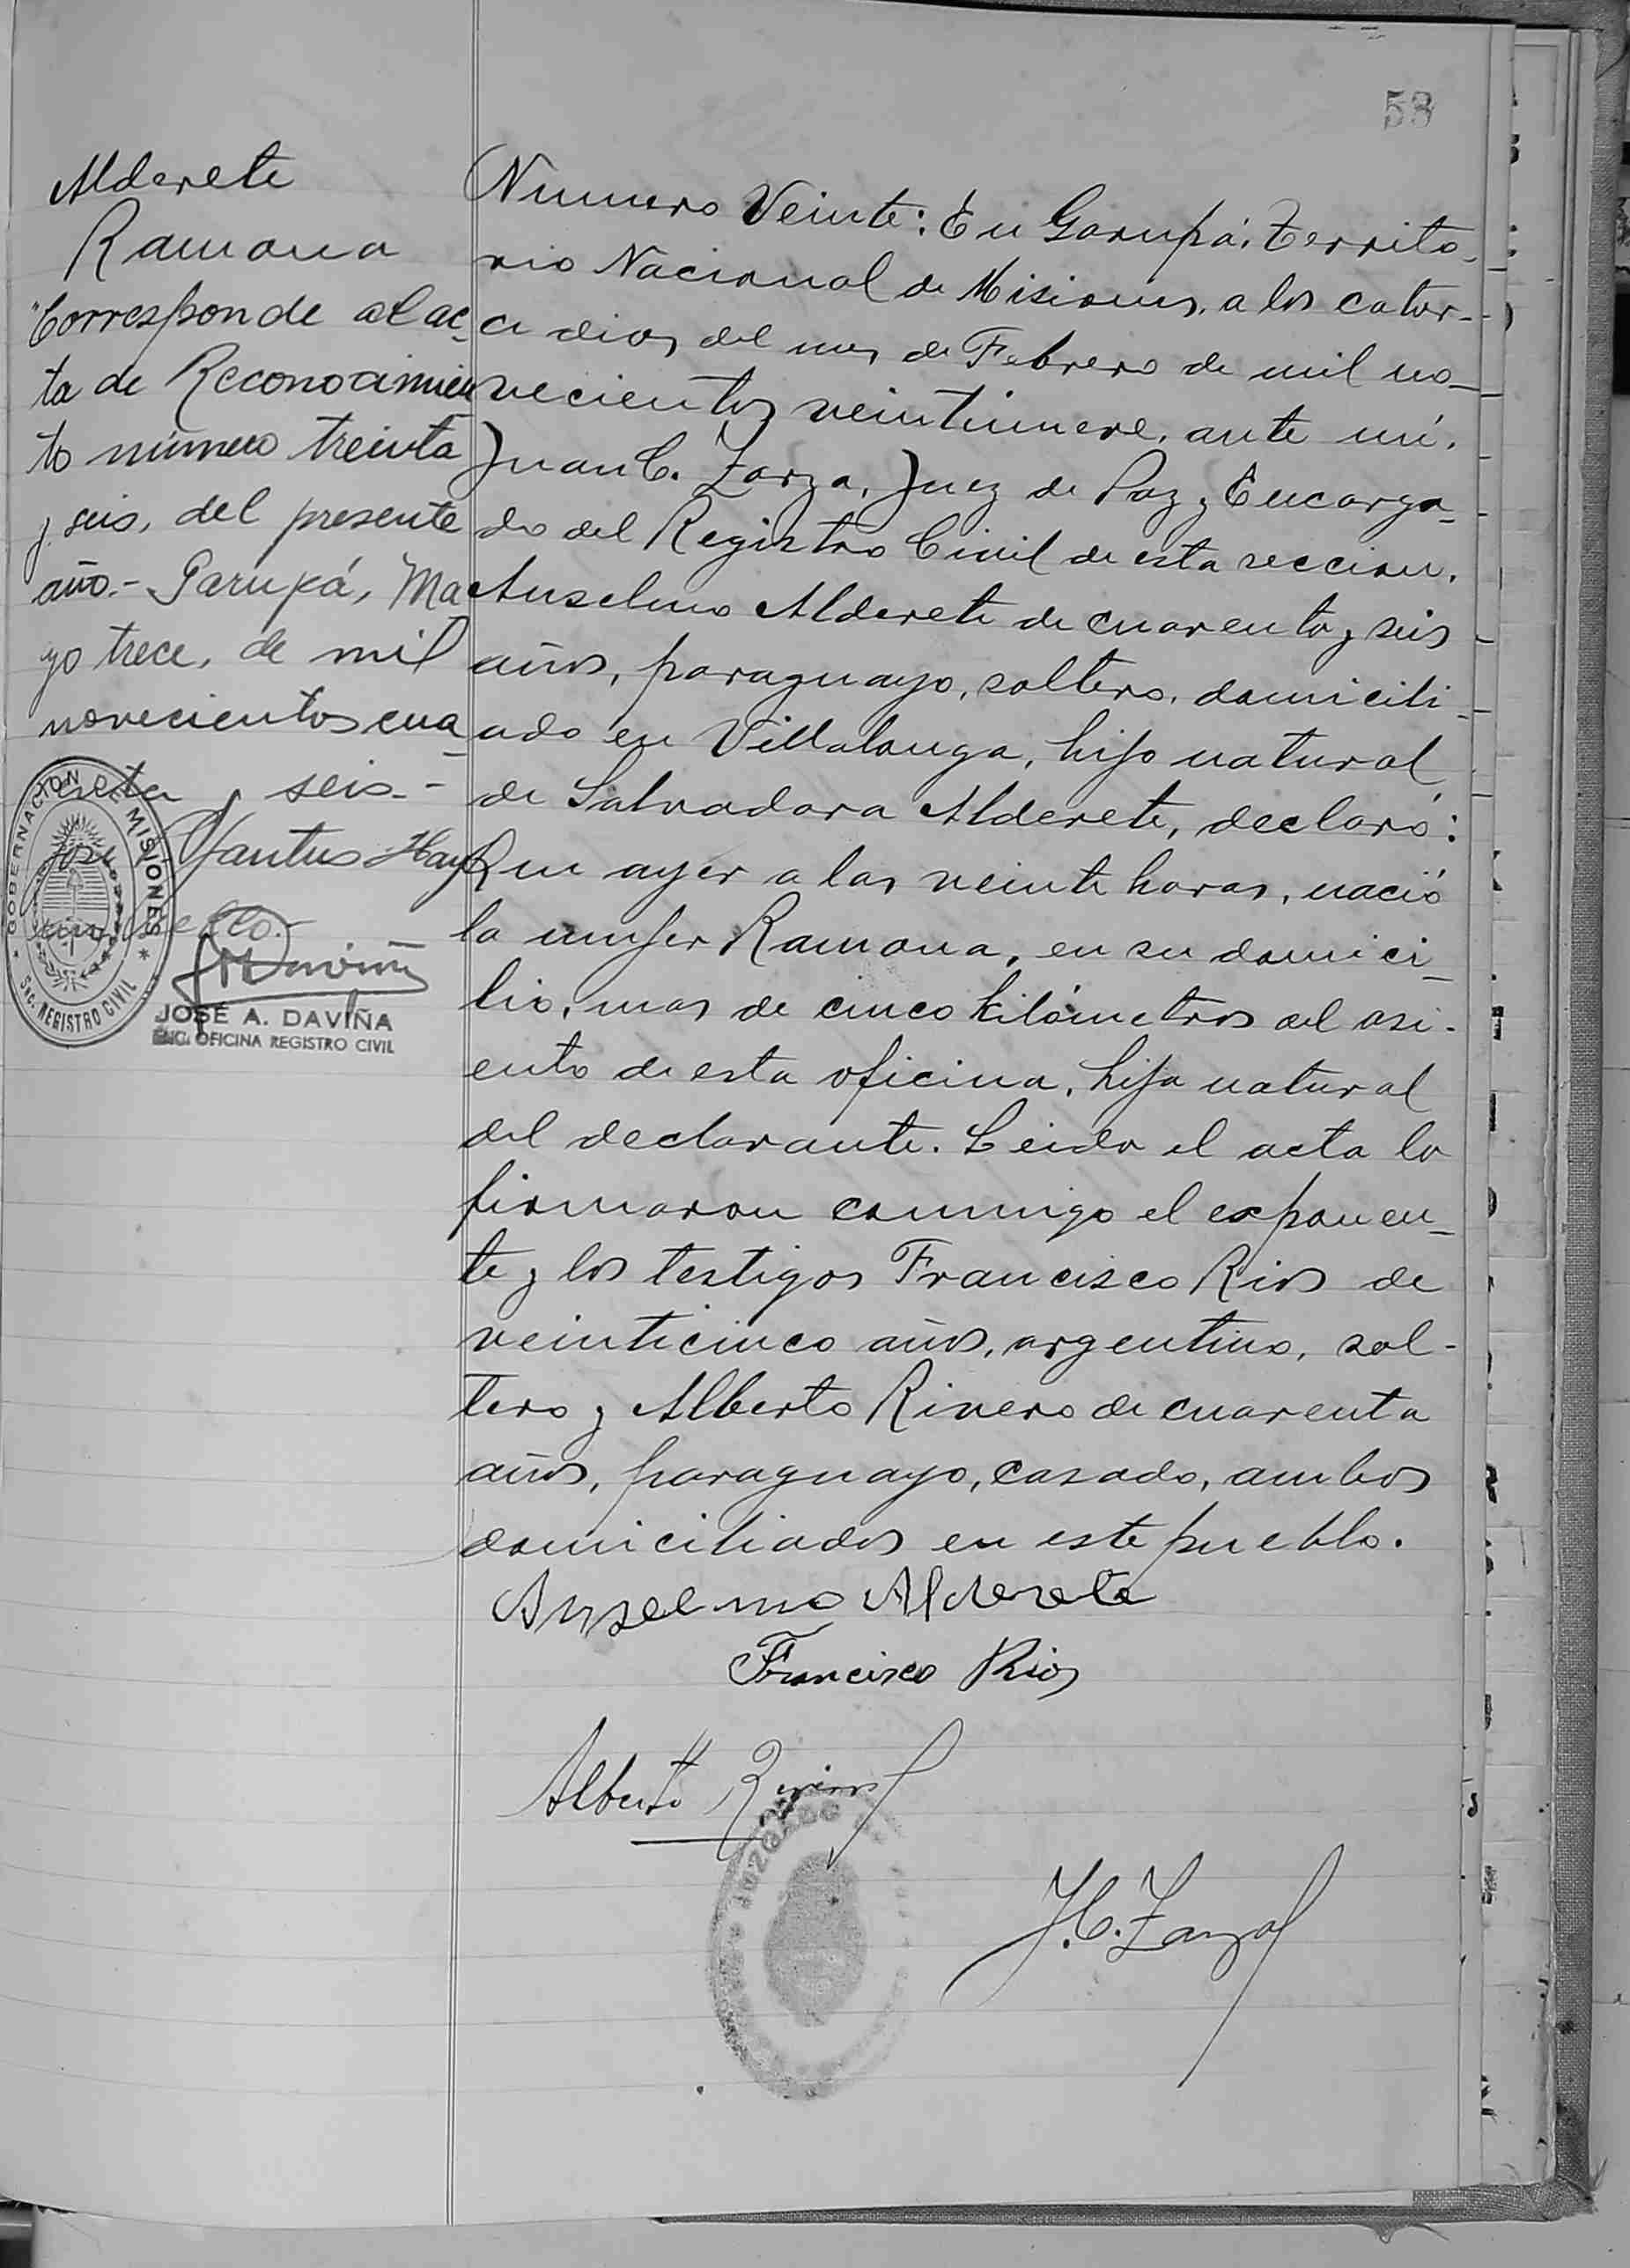 58
Alderete
Ramona
"Corresponde al ac-
ta de Reconocimien
to número treinta
y seis, del presente
año.- Garupá, Ma
yo trece, de mil
novecientos cua-
renta y seis.-
GOBERNACION DE MISIONES
Sec. REGISTRO CIVIL
JOSÉ A. DAVIÑA
ENC. OFICINA REGISTRO CIVIL
Numero Veinte: En Garupá, Territo-
rio Nacional de Misiones, a los cator-
ce dias del mes de Febrero de mil no-
vecientos veintinueve, ante mí,
Juan C. Zarza, Juez de Paz y Encarga-
do del Registro Civil de esta seccion,
Anselmo Alderete de cuarenta y seis
años, paraguayo, soltero, domicili-
ado en Villalonga, hijo natural
de Salvadora Alderete, declaró:
Que ayer a las veinte horas, nació
la mujer Ramona, en su domici-
lio, mas de cinco kilómetros del asi-
ento de esta oficina, hija natural
del declarante. Leida el acta la
firmaron conmigo el exponen-
te y los testigos Francisco Rios de
veinticinco años, argentino, sol-
tero y Alberto Rivero de cuarenta
años, paraguayo, casado, ambos
domiciliados en este pueblo.
Anselmo Alderete
Francisco Rios
Alberto Rivero
JUZGADO
J.C. Zarza